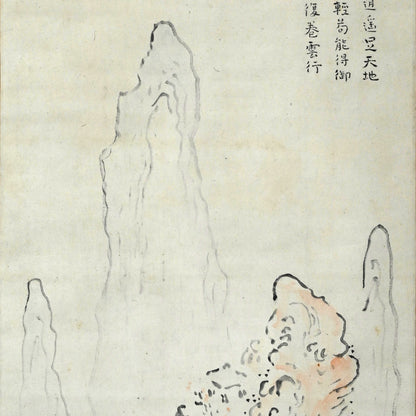 逍遥足天地
輕苟能得御
復卷雲行